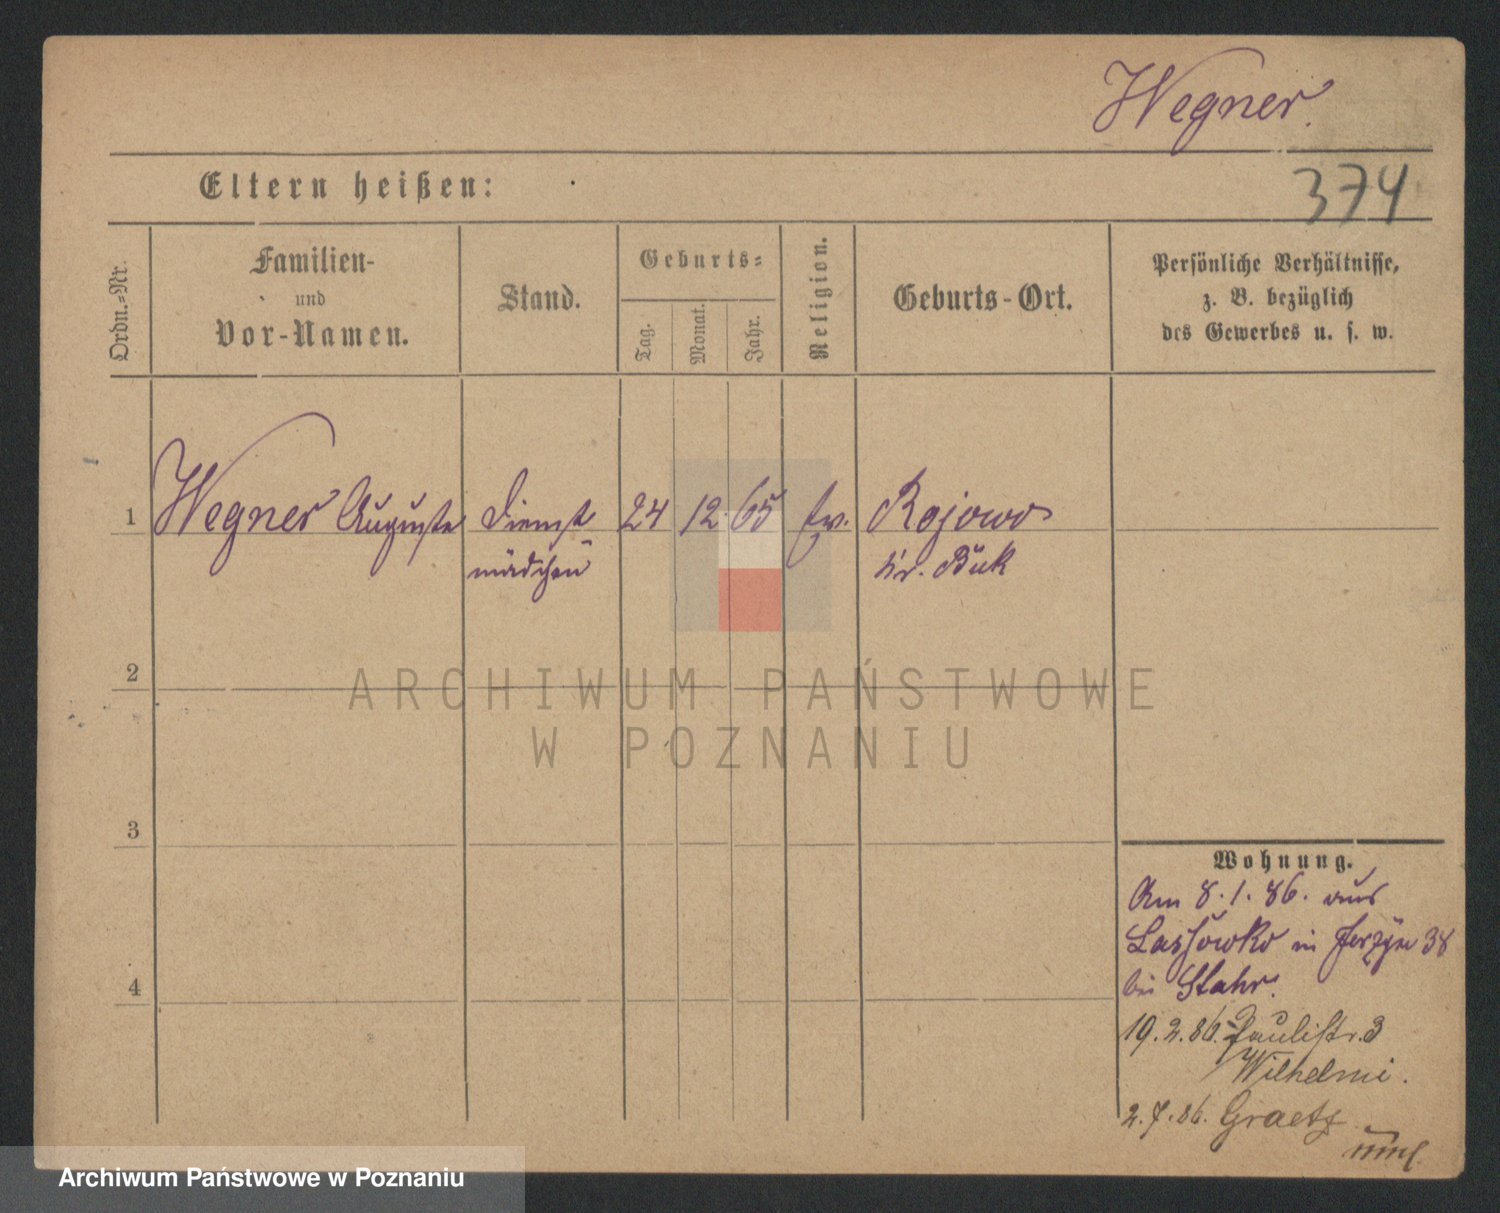 Wegner.
Eltern heißen:
374
Ordn.-Nr.
Familien-
und
Vor-Namen.
Stand.
Geburts-
Tag.
Monat.
Jahr.
Religion.
Geburts-Ort.
Persönliche Verhältnisse,
z. B. bezüglich
des Gewerbes u. s. w.
1 Wegner Auguste Dienst 24 12 65 ev. Rojowo
mädchen Kr. Buk
2
ARCHIWUM PAŃSTWOWE
W POZNANIU
3
4
Wohnung.
Am 8.1.86. aus
Lassowko in Jerzyce 38
bei Stahr.
19.2.86. Paulistr. 3
Wilhelmi.
2.7.86. Graetz
Archiwum Państwowe w Poznaniu